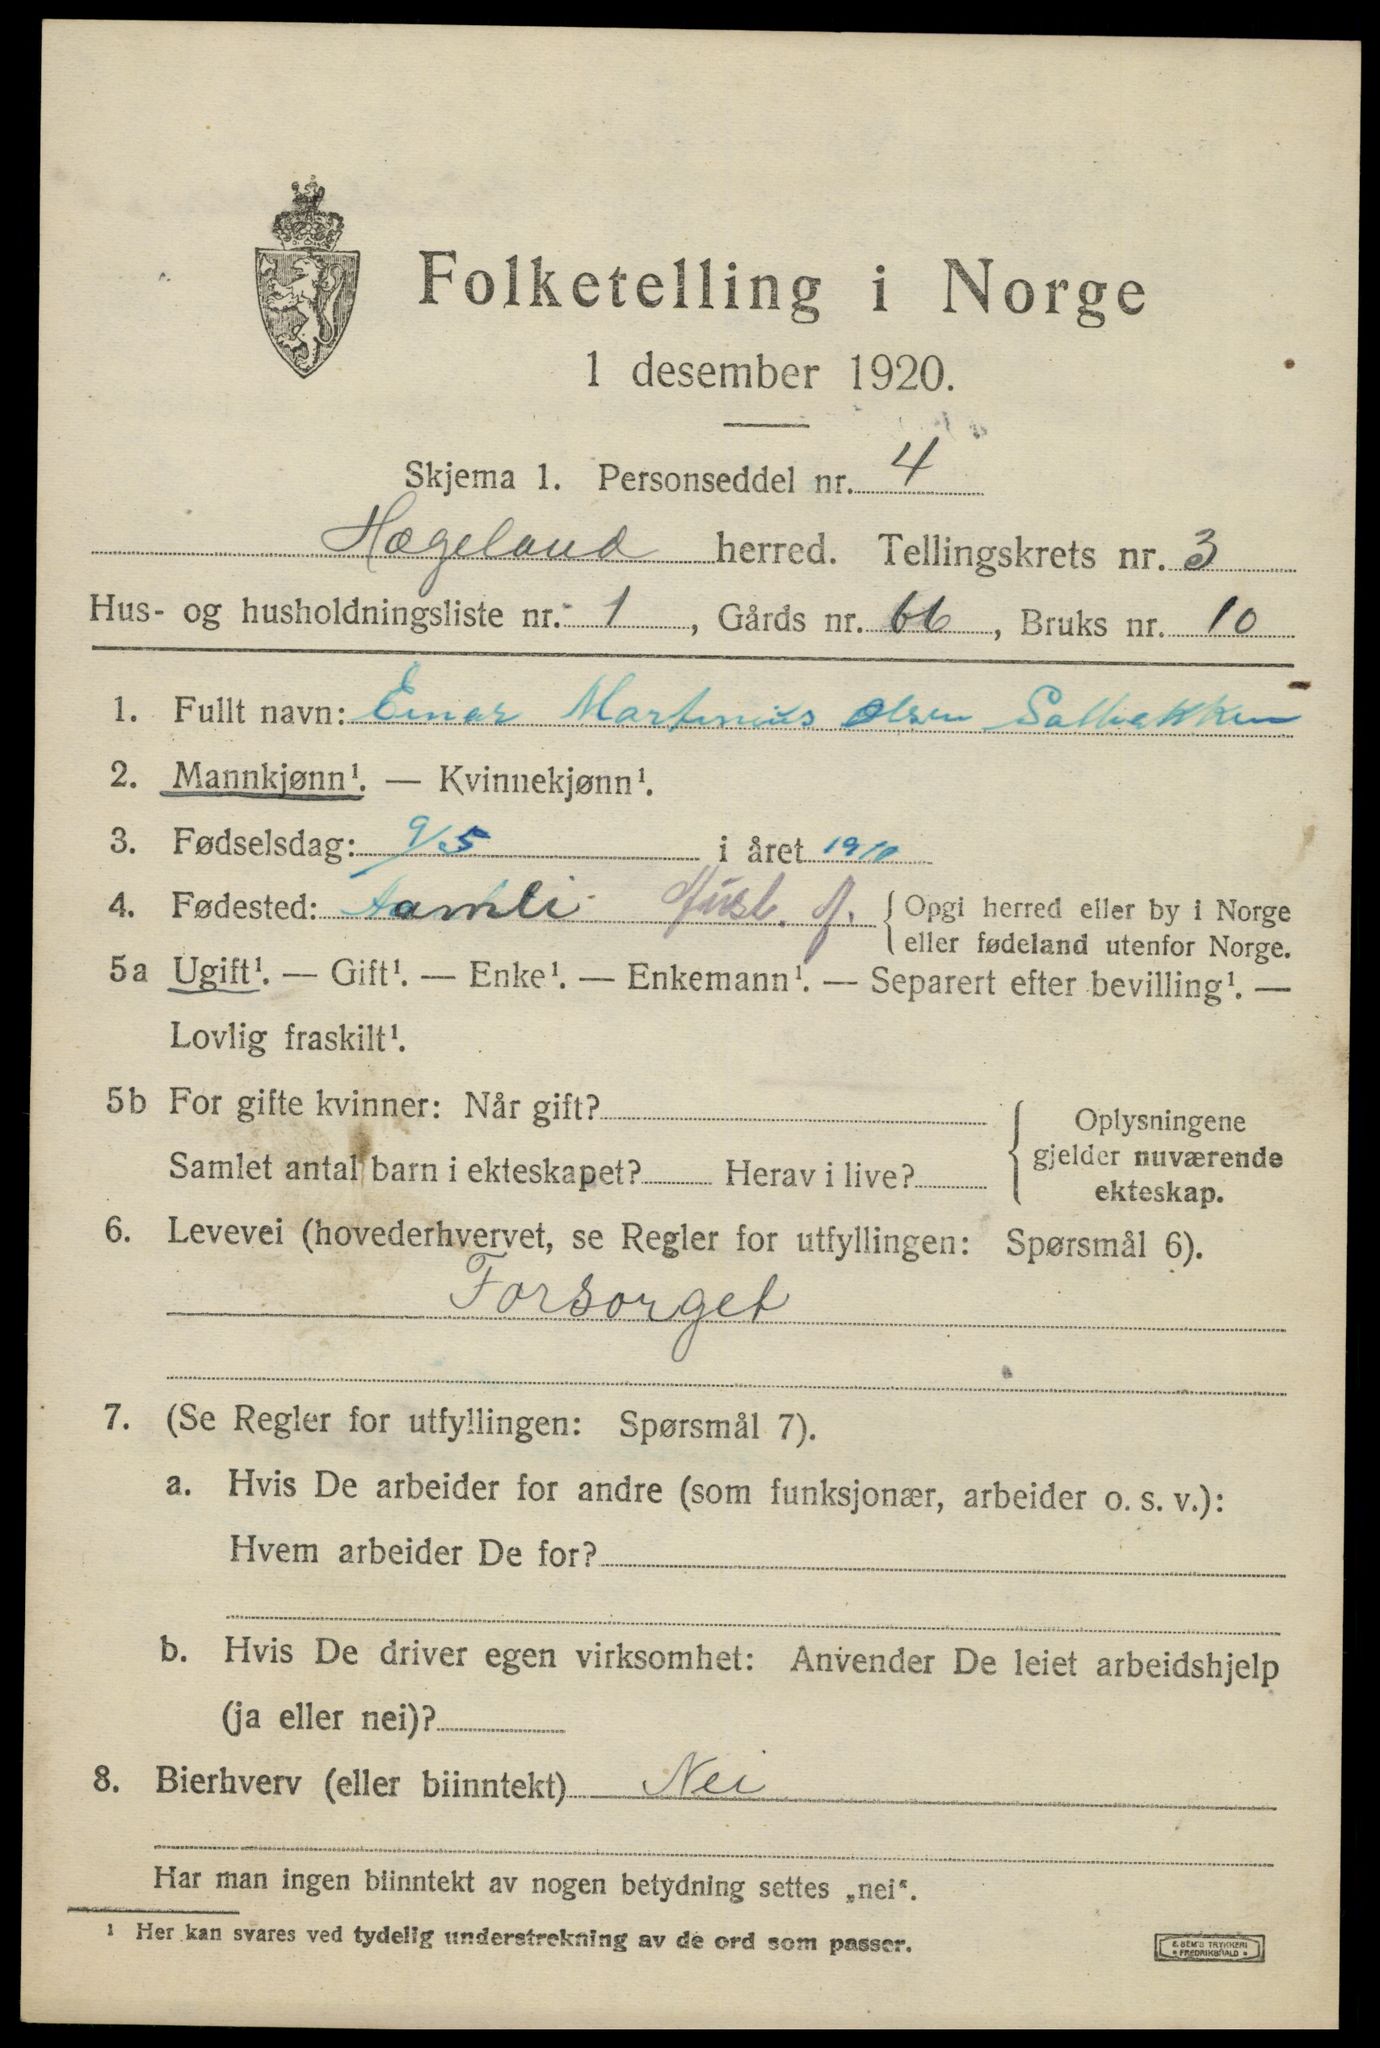 Folketelling i Norge
1 desember 1920.
Skjema 1. Personseddel nr. 4
Hægeland herred. Tellingskrets nr. 3
Hus- og husholdningsliste nr. 1, Gårds nr. 66, Bruks nr. 10
1. Fullt navn: Einar Martinius Olsen Solbakken
2. Mannkjønn¹. — Kvinnekjønn¹.
3. Fødselsdag: 9/5 i året 1910
4. Fødested: Aamli { Opgi herred eller by i Norge
eller fødeland utenfor Norge.
5a Ugift¹. — Gift¹. — Enke¹. — Enkemann¹. — Separert efter bevilling¹. —
Lovlig fraskilt¹.
5b For gifte kvinner: Når gift?
Samlet antal barn i ekteskapet? Herav i live?
Oplysningene
gjelder nuværende
ekteskap.
6. Levevei (hovederhvervet, se Regler for utfyllingen: Spørsmål 6).
Forsorget
7. (Se Regler for utfyllingen: Spørsmål 7).
a. Hvis De arbeider for andre (som funksjonær, arbeider o. s. v.):
Hvem arbeider De for?
b. Hvis De driver egen virksomhet: Anvender De leiet arbeidshjelp
(ja eller nei)?
8. Bierhverv (eller biinntekt) Nei
Har man ingen biinntekt av nogen betydning settes „nei“.
¹ Her kan svares ved tydelig understrekning av de ord som passer.
E. SEM'S TRYKKERI
• FREDRIKSHALD •